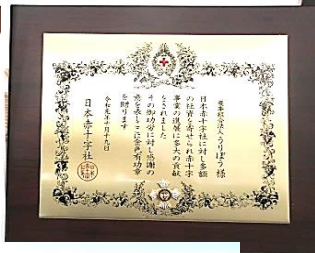 うりぼう 様
日本赤十字社に対し多額
の社資を寄せられ赤十字
事業の進展に多大の貢献
をされました
その御功労に対し感謝の
意を表しここに金色有功章
を贈ります
令和元年 月十九日
日本赤十字社